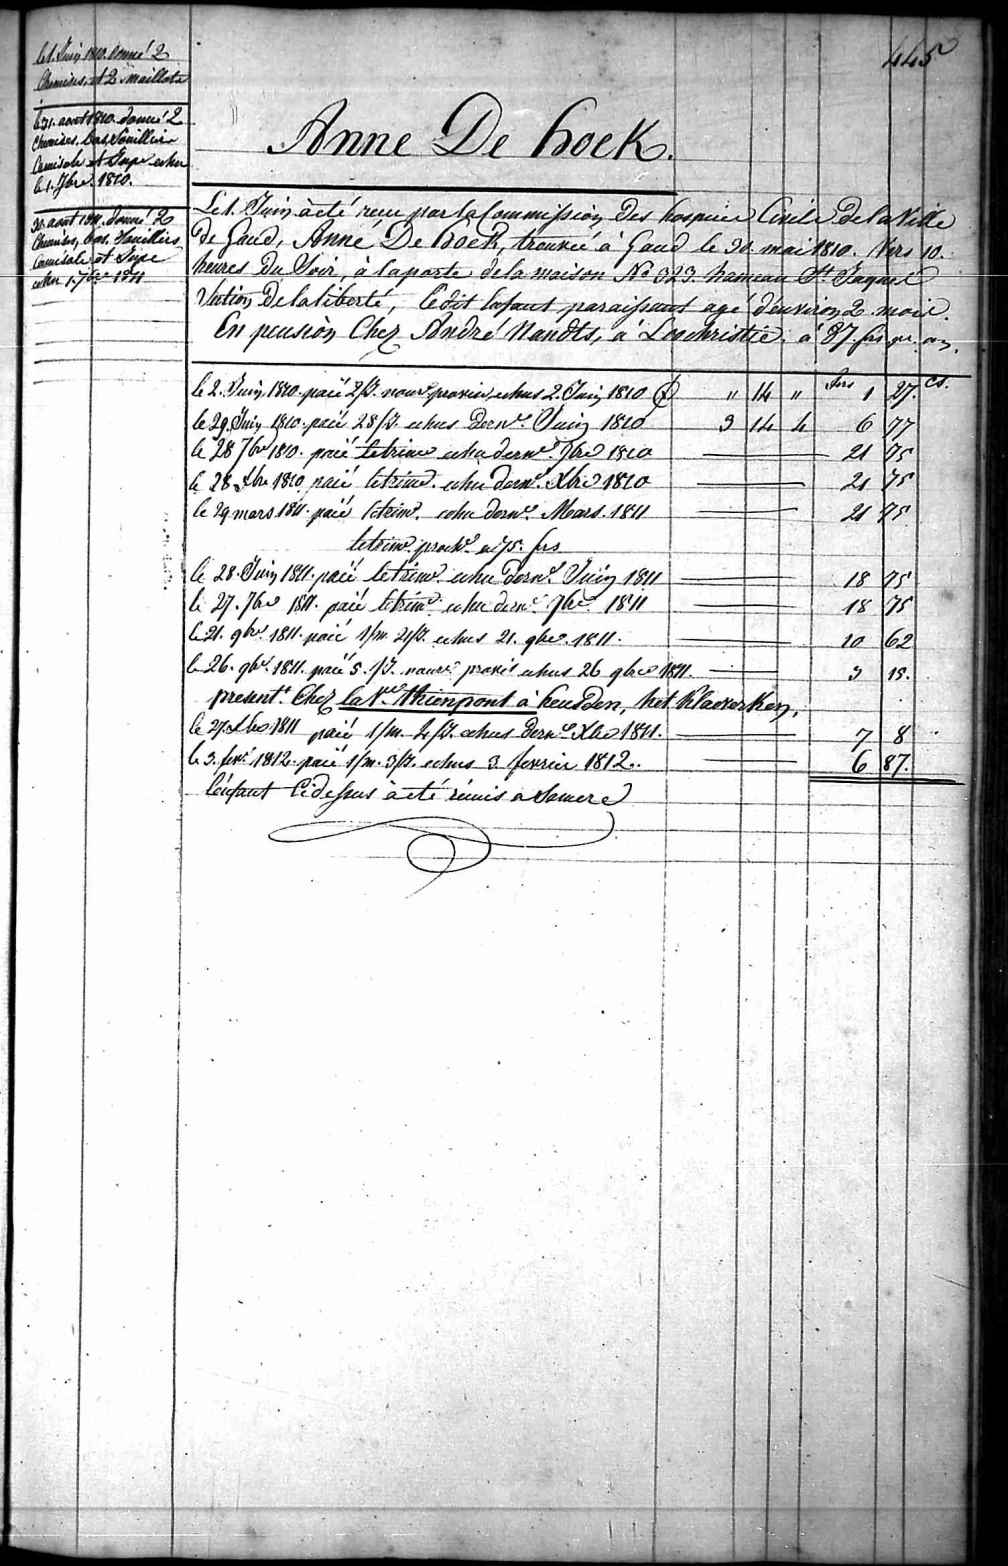 445
le 1. Juin 1810. donné 2
Chemises, et 2 maillots
le 31. aout 1810. donné 2
Chemises. bas. Souillier
Camisole et Jupe echu
le 1. 7bre. 1810.
30 aout 1811. donné 2
Chemises, bas. Souilliers
Camisole et Jupe
echu 1. 7bre 1811
Anne De hoek.
Le 1. Juin à été recu par la Commission des hospices Civils de la Ville
de Gand, Anne De hoek, trouvée à Gand le 30. mai 1810. Vers 10.
heures du Soir, à la porte de la maison No 323. hameau St. Jaques
Section de la liberté, Ledit Enfant paraissant agé d'environ 2 mois.
En pension Chez André Nandts, à Loochristie. à 87. frs par an.
frs cs.
le 2. Juin 1810. paié 2/J. nour. provis. echus 2. Juin 1810 " 14 " 1 27.
le 29. Juin 1810. paié 28/J. echus dernr. Juin 1810 3 14 4 6 77
le 28 7bre 1810. paié letrime echu dernr. 7bre 1810 21 75
le 28 Xbre 1810 paié letrime. echu dernr. Xbre 1810 21 75
le 29 mars 1811. paié letrime. echu dernr. Mars. 1811 21 75
letrime. proch. a 75. frs
le 28. Juin 1811. paié letrime. echu dernr. Juin 1811 18 75
le 27. 7bre 1811. paié letrime. echu dernr. 7bre 1811 18 75
le 21. 9bre. 1811. paié 1/m. 21/J. echus 21. 9bre. 1811. 10 62
le 26. 9bre. 1811. paié 5. /J. nourr. provis echus 26 9bre 1811. 3 15.
present. Chez la Ve. thienpont à heusden, het Klaverken,
le 27. Xbre 1811 paié 1/m. 4/J. echus dernr. Xbre 1811. 7 8
le 3. fevr. 1812. paié 1/m. 3/J. echus 3. fevrier 1812. 6 87.
l'enfant Cidessus à été remis a Sa mere